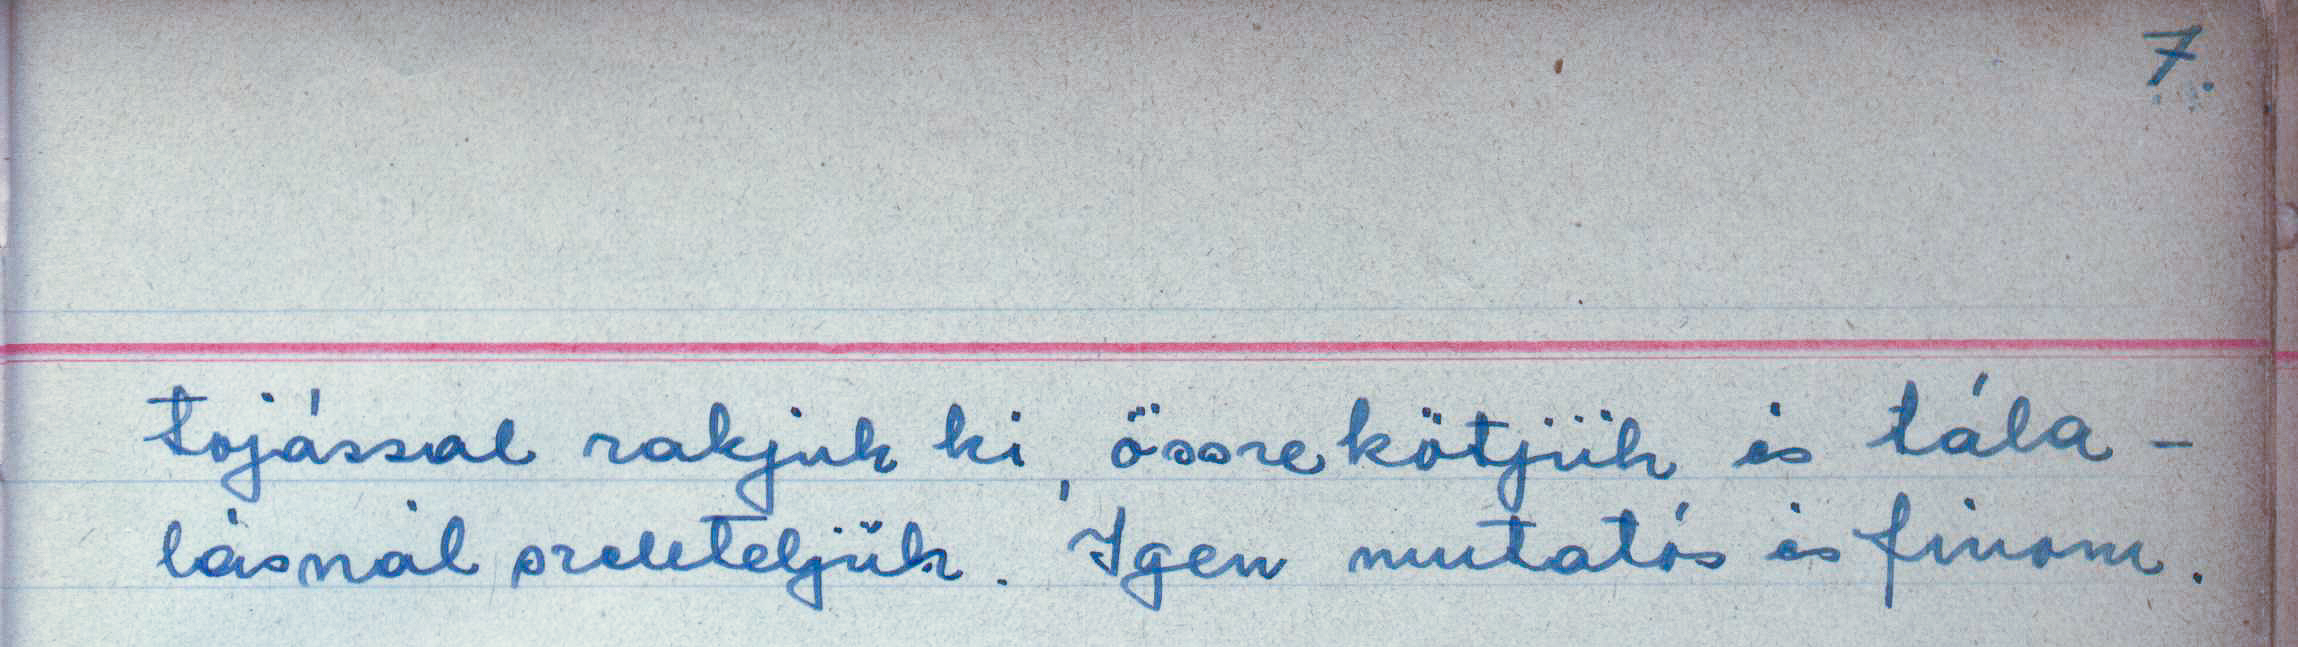 7.
tojással rakjuk ki, összekötjük és tála-
lásnál szeleteljük. Igen mutatós és finom.